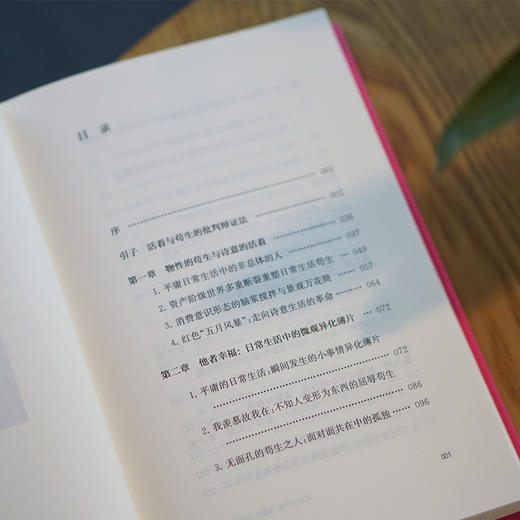 目录
序 ………………………………… 001
引子 活着与苟生的批判辩证法 ……………… 001
第一章 物性的苟生与诗意的活着 ……………… 036
1. 平庸日常生活中的非总体的人 ……………… 036
2. 资产阶级世界多重断裂重塑日常生活苟生 …… 049
3. 消费意识形态的脑浆搅拌与景观万花筒 ……… 057
4. 红色“五月风暴”:走向诗意生活的革命 ……… 064
第二章 他者幸福:日常生活中的微观异化薄片 …… 072
1. 平庸的日常生活:瞬间发生的小事情异化薄片
………………………………… 072
2. 我羡慕故我在:不知人变形为东西的屈辱苟生
………………………………… 086
3. 无面孔的苟生之人:面对面共在中的孤独 …… 096
001